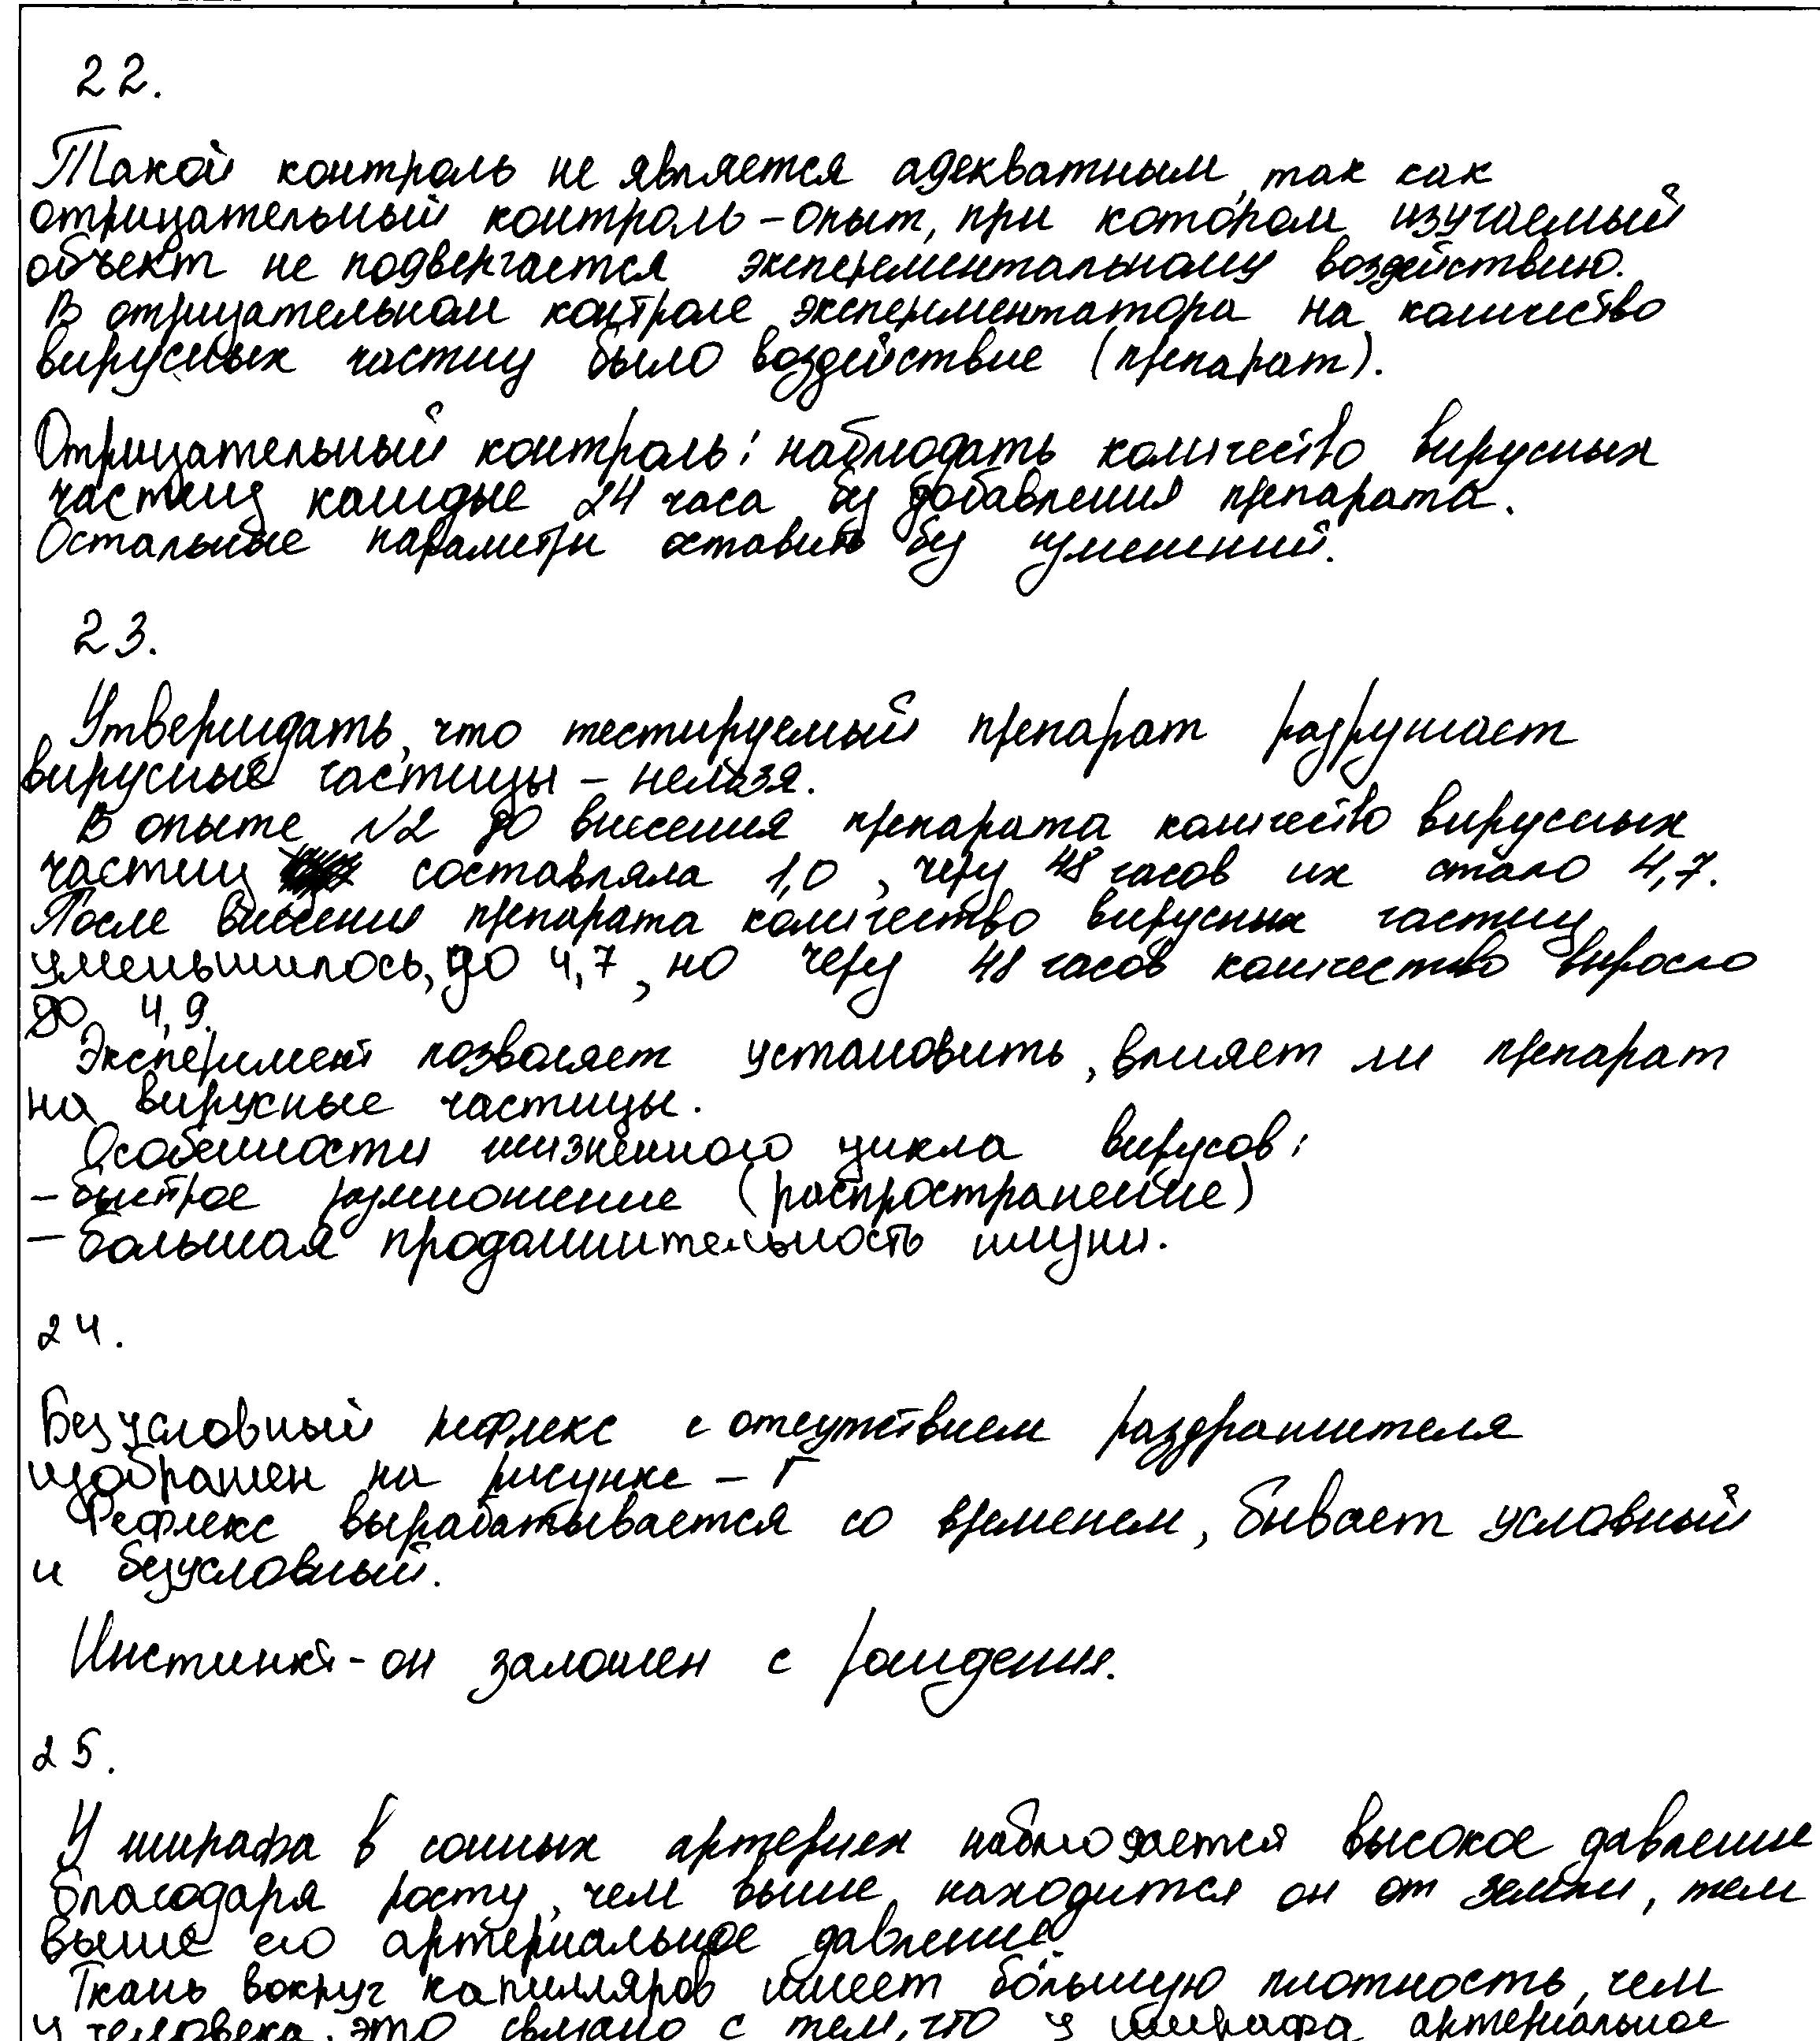 22.
Такой контроль не является адекватным, так как
отрицательный контроль – опыт, при котором изучаемый
объект не подвергается эксперементальному воздействию.
В отрицательном контроле экспериментатора на количество
вирусных частиц было воздействие (препарат).
Отрицательный контроль: наблюдать количество вирусных
частиц каждые 24 часа без добавления препарата.
Остальные параметры оставить без изменений.
23.
Утверждать, что тестируемый препарат разрушает
вирусные частицы – нельзя.
В опыте №2 до внесения препарата количество вирусных
частиц составляла 1,0, через 48 часов их стало 4,7.
После внесения препарата количество вирусных частиц
уменьшилось, до 4,7, но через 48 часов количество выросло
до 4,9.
Эксперимент позволяет установить, влияет ли препарат
на вирусные частицы.
Особенности жизненного цикла вирусов:
– быстрое размножение (распространение)
– большая продолжительность жизни.
24.
Безусловный рефлекс с отсутствием раздражителя
изображен на рисунке – Г
Рефлекс вырабатывается со временем, бывает условный
и безусловный.
Инстинкт – он заложен с рождения.
25.
У жирафа в сонных артериях наблюдается высокое давление
благодаря росту, чем выше находится он от земли, тем
выше его артериальное давление.
Ткань вокруг капилляров имеет бо́льшую плотность, чем
у человека, это связано с тем, что у жирафа артериальное